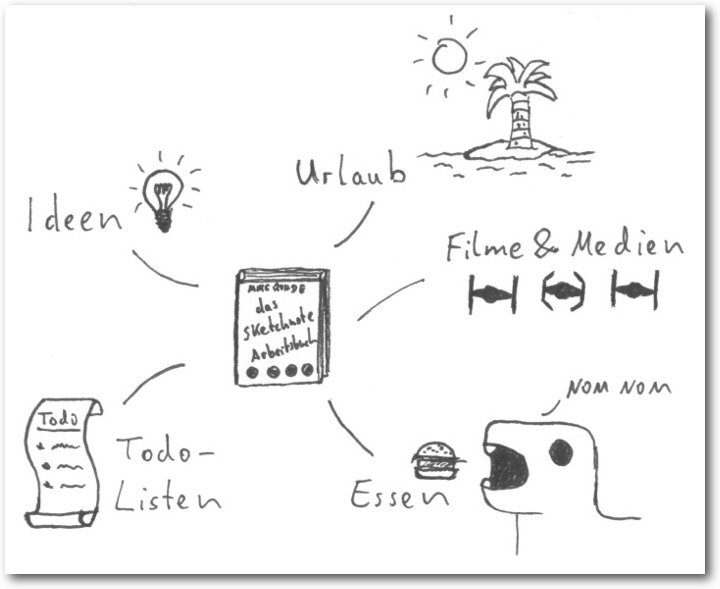 Urlaub
Ideen
Filme & Medien
MIKE ROHDE
das
Sketchnote
Arbeitsbuch
NOM NOM
Todo
Todo-
Listen
Essen